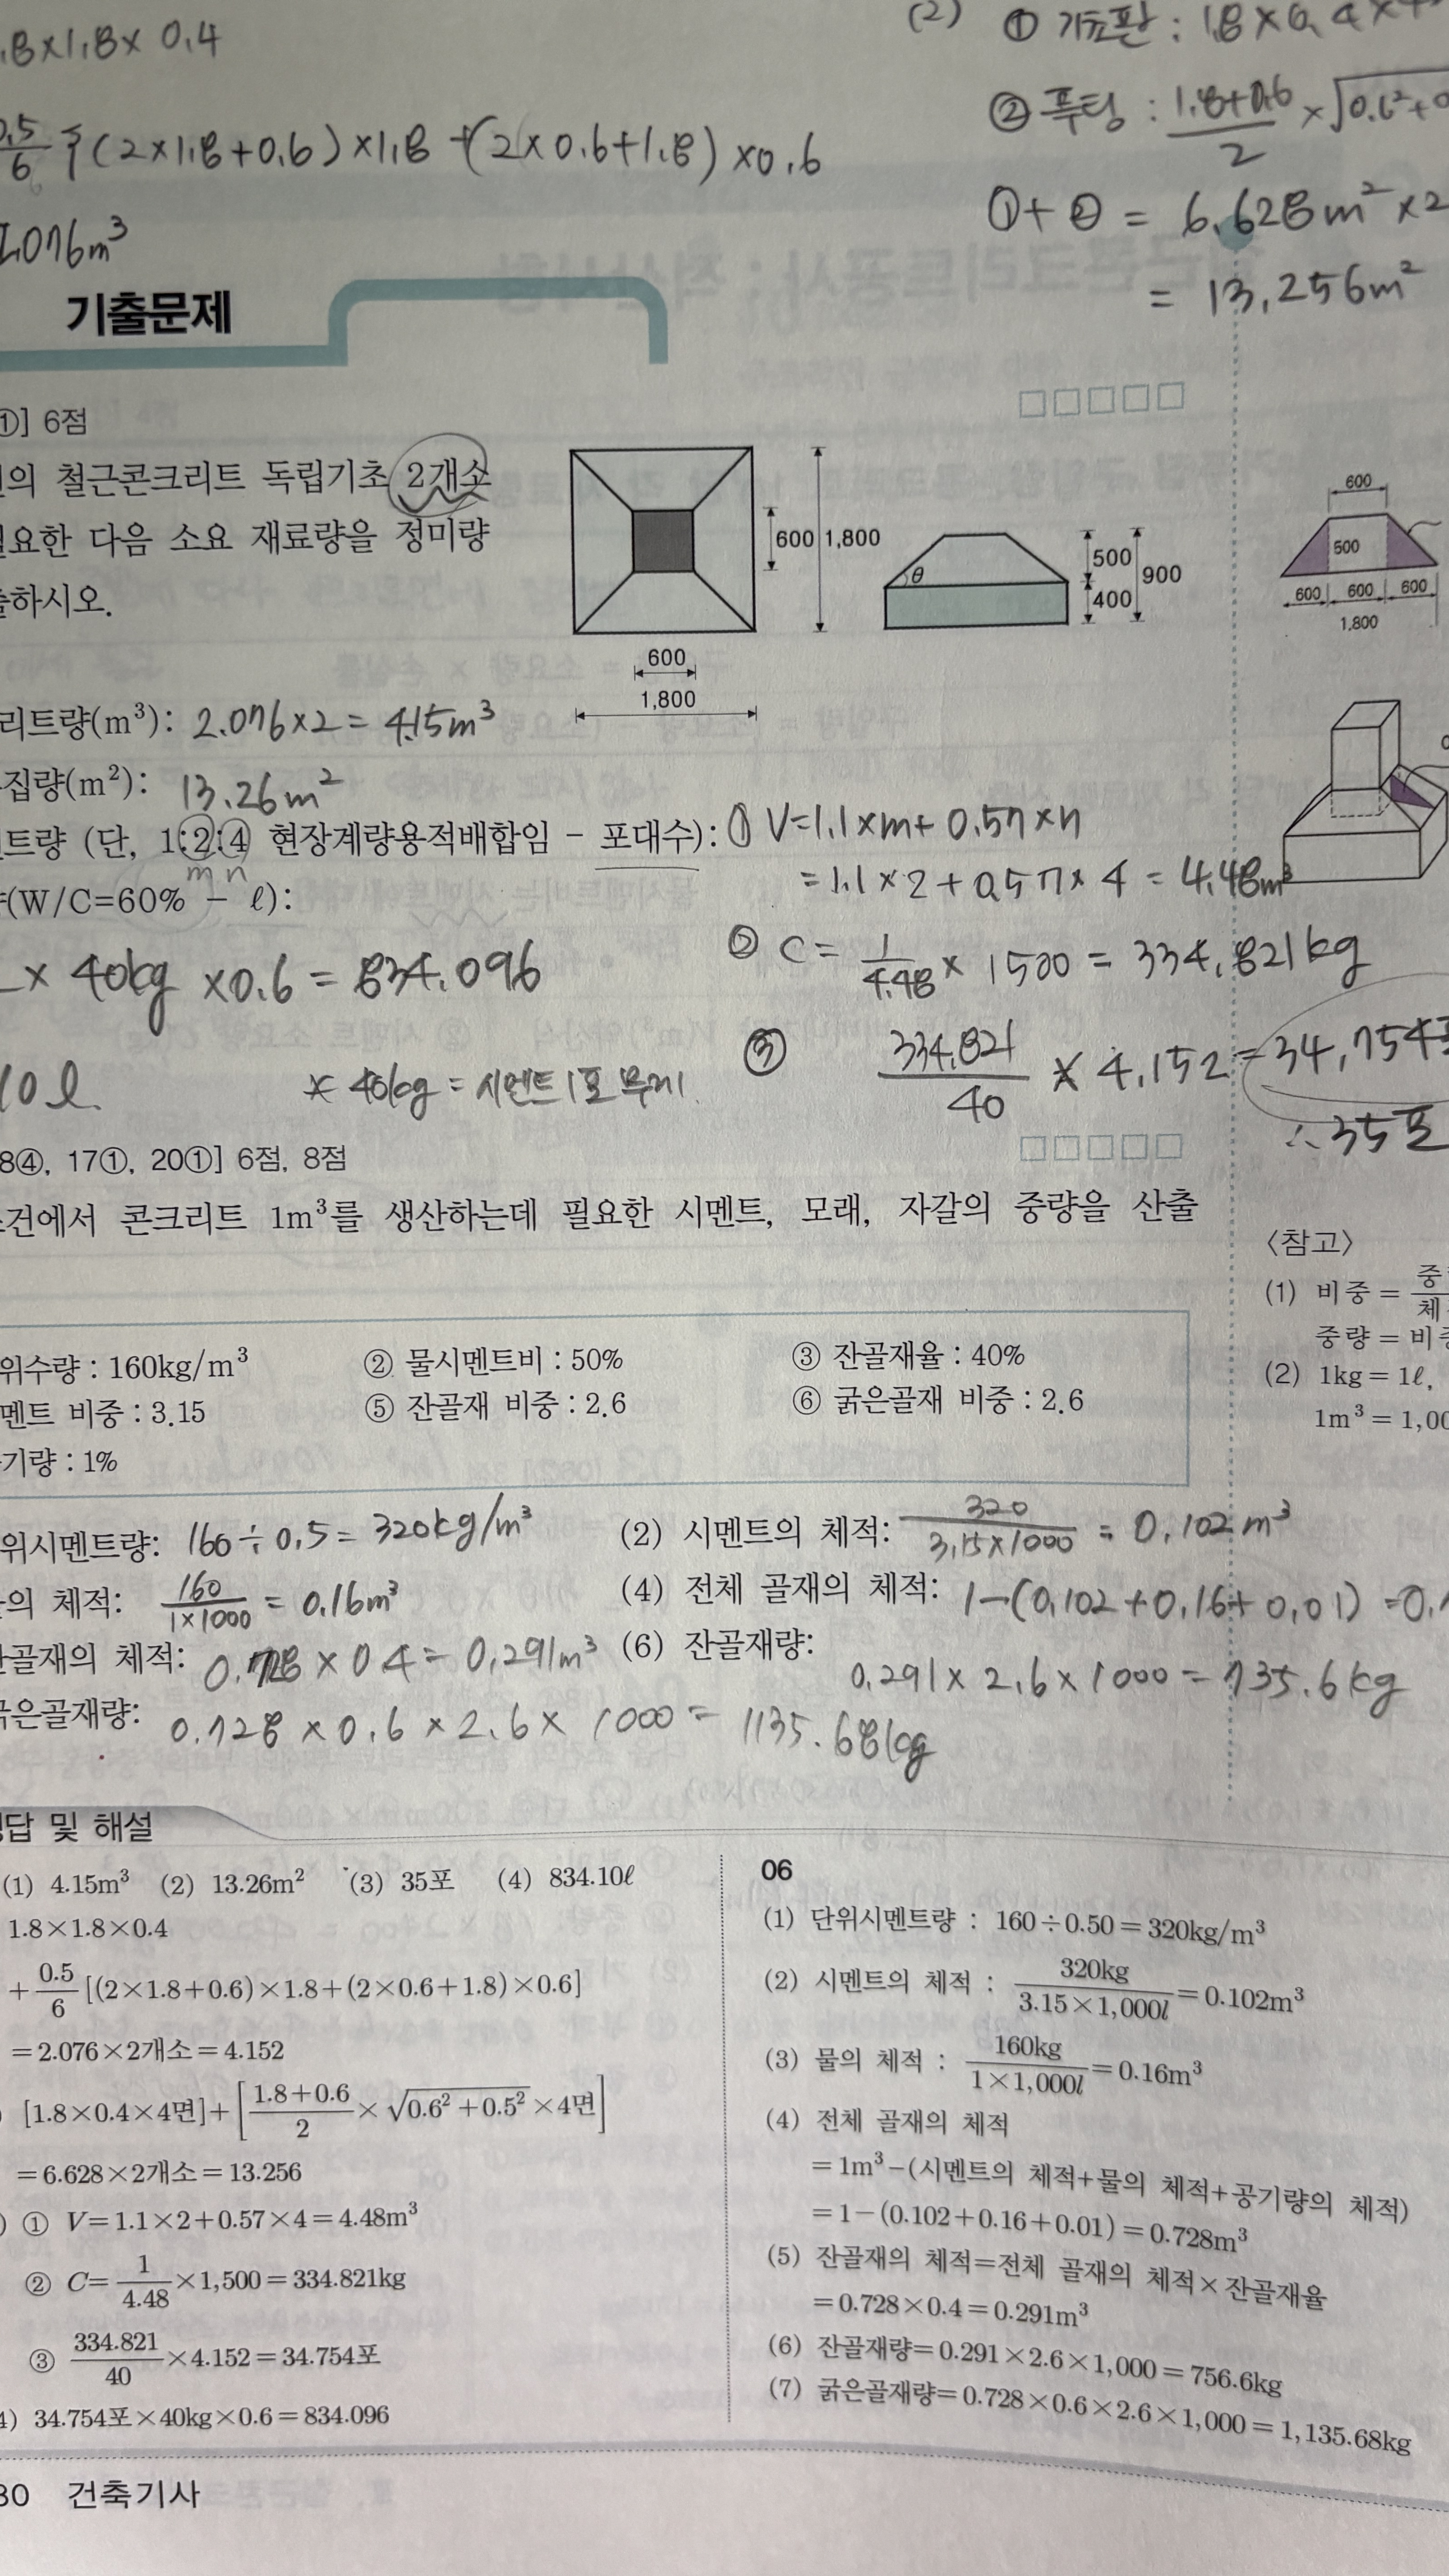 .8×1.8×0.4
0.5/6 {(2×1.8+0.6)×1.8+(2×0.6+1.8)×0.6
2.076m³
(2) ① 기초판 : 1.8×0.4×4
② 푸팅 : (1.8+0.6)/2 × √0.6²+0
①+② = 6.628m²×2
= 13.256m²
기출문제
①] 6점
의 철근콘크리트 독립기초 2개소
요한 다음 소요 재료량을 정미량
출하시오.
600 1,800
600
1,800
θ
500
400
900
600
500
600 600 600
1,800
리트량(m³): 2.076×2 = 4.15m³
집량(m²): 13.26m²
트량 (단, 1:2:4 현장계량용적배합임 - 포대수): ① V=1.1×m+0.57×n
m n
=1.1×2+0.57×4 = 4.48m³
(W/C=60% - ℓ):
② C = 1/4.48 × 1500 = 334.821kg
× 40kg ×0.6 = 834.096
③ 334.821/40 × 4.152 = 34.754포
10ℓ
* 40kg = 시멘트 1포 무게
∴ 35포
8④, 17①, 20①] 6점, 8점
건에서 콘크리트 1m³를 생산하는데 필요한 시멘트, 모래, 자갈의 중량을 산출
위수량 : 160kg/m³ ② 물시멘트비 : 50% ③ 잔골재율 : 40%
멘트 비중 : 3.15 ⑤ 잔골재 비중 : 2.6 ⑥ 굵은골재 비중 : 2.6
기량 : 1%
〈참고〉
(1) 비중 = 중/체
중량 = 비중
(2) 1kg = 1ℓ,
1m³ = 1,00
위시멘트량: 160÷0.5 = 320kg/m³ (2) 시멘트의 체적: 320/3.15×1000 = 0.102m³
의 체적: 160/1×1000 = 0.16m³ (4) 전체 골재의 체적: 1-(0.102+0.16+0.01) =0.
잔골재의 체적: 0.728×0.4 = 0.291m³ (6) 잔골재량: 0.291×2.6×1000 = 735.6kg
굵은골재량: 0.728×0.6×2.6×1000 = 1135.68kg
답 및 해설
(1) 4.15m³ (2) 13.26m² (3) 35포 (4) 834.10ℓ
1.8×1.8×0.4
+0.5/6[(2×1.8+0.6)×1.8+(2×0.6+1.8)×0.6]
=2.076×2개소=4.152
[1.8×0.4×4면]+[(1.8+0.6)/2×√0.6²+0.5²×4면]
=6.628×2개소=13.256
) ① V=1.1×2+0.57×4=4.48m³
② C=1/4.48×1,500=334.821kg
③ 334.821/40×4.152=34.754포
4) 34.754포×40kg×0.6=834.096
06
(1) 단위시멘트량 : 160÷0.50=320kg/m³
(2) 시멘트의 체적 : 320kg/3.15×1,000l=0.102m³
(3) 물의 체적 : 160kg/1×1,000l=0.16m³
(4) 전체 골재의 체적
=1m³-(시멘트의 체적+물의 체적+공기량의 체적)
=1-(0.102+0.16+0.01)=0.728m³
(5) 잔골재의 체적=전체 골재의 체적×잔골재율
=0.728×0.4=0.291m³
(6) 잔골재량=0.291×2.6×1,000=756.6kg
(7) 굵은골재량=0.728×0.6×2.6×1,000=1,135.68kg
30 건축기사